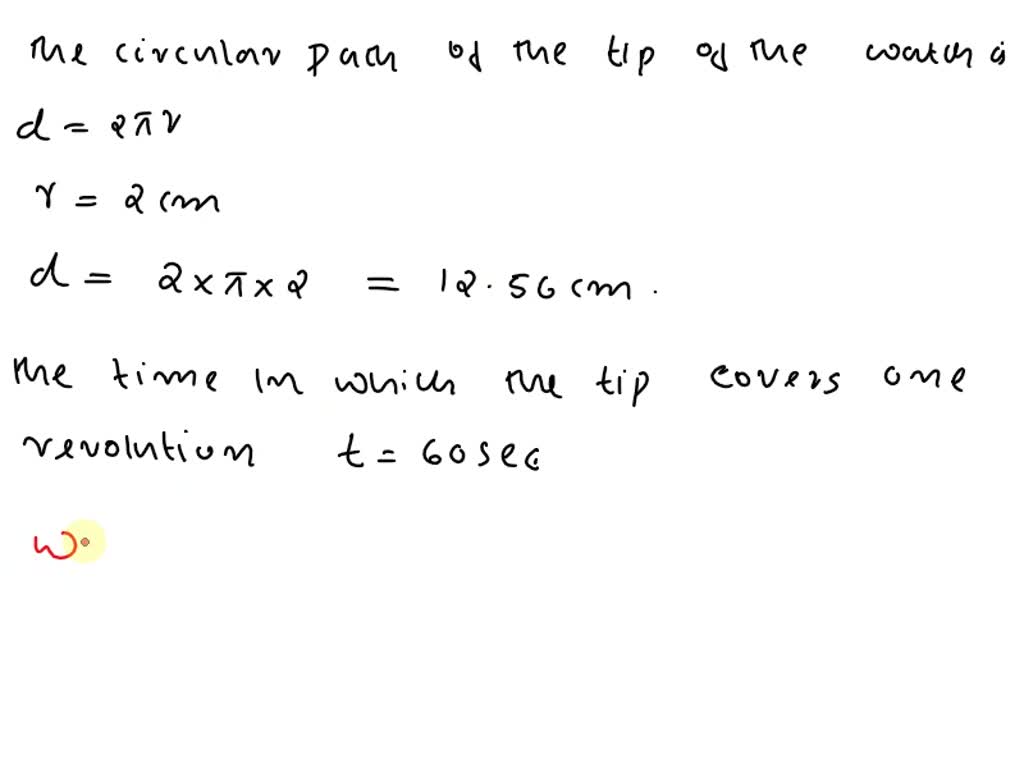 the circular path of the tip of the watch is
d = 2πr
r = 2 cm
d = 2 × π × 2 = 12.56 cm.
the time in which the tip covers one
revolution t = 60 sec
w